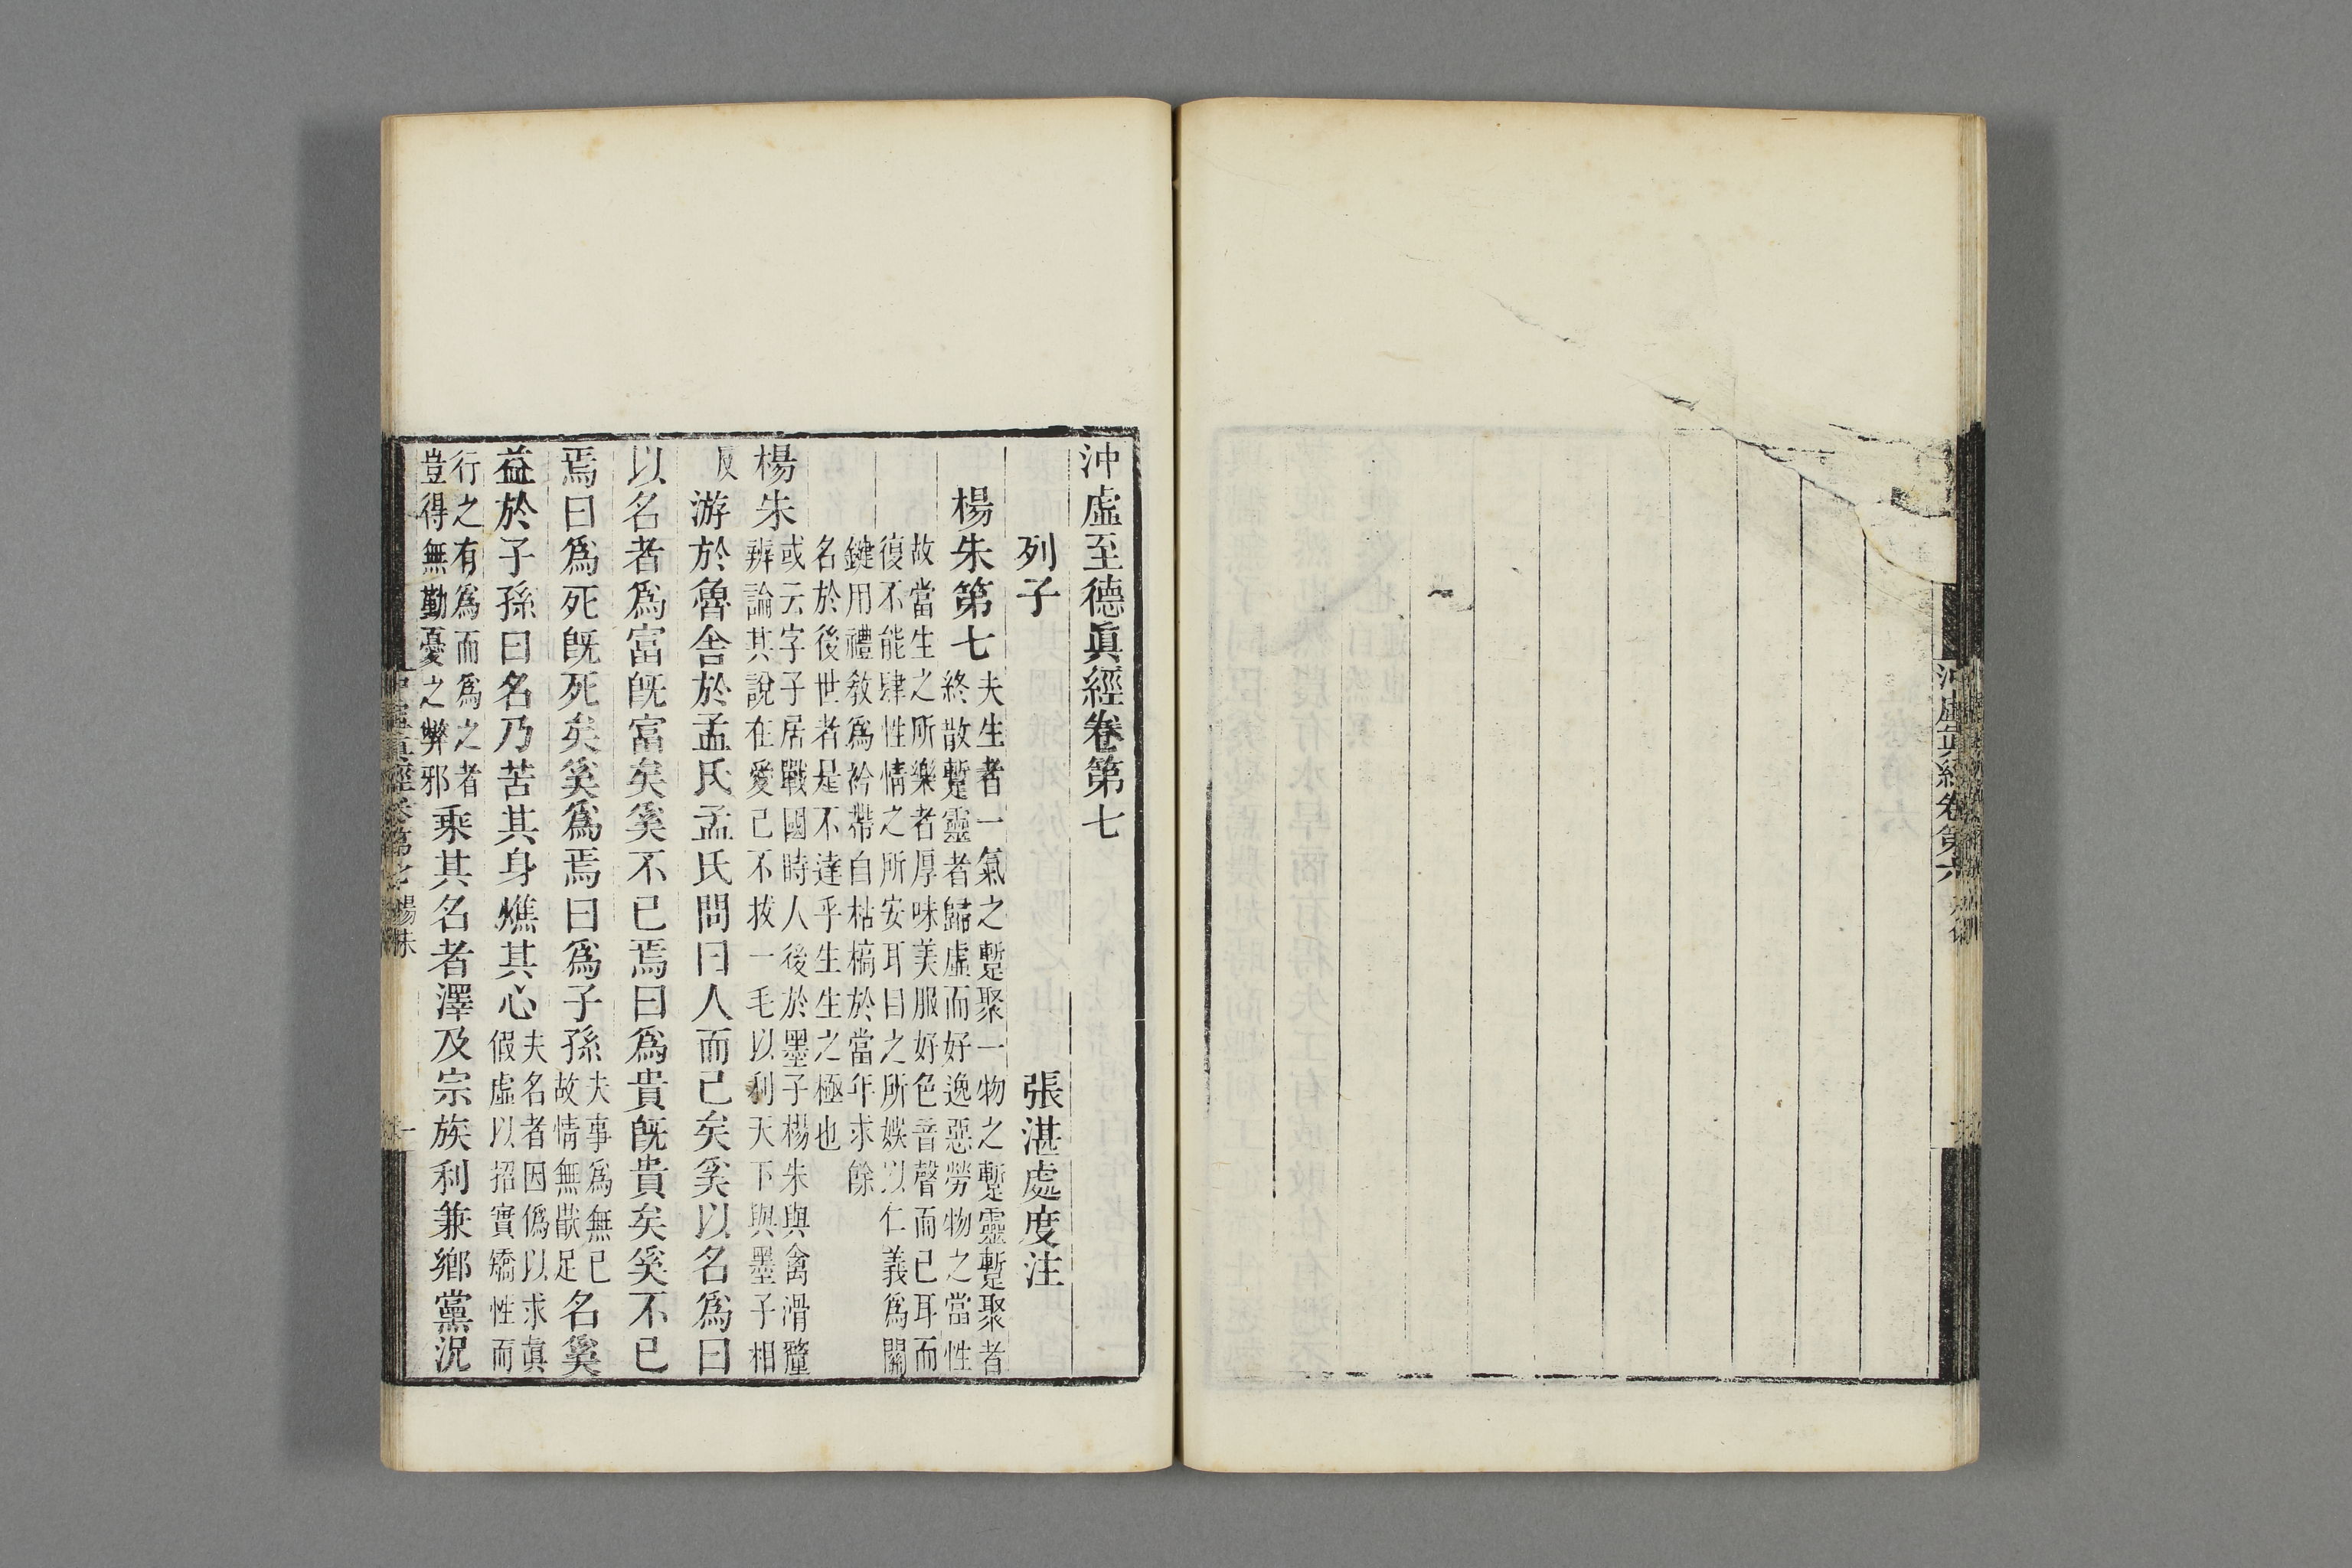 沖虛眞經卷第六
沖虛至德眞經卷第七
列子 張湛處度注
楊朱第七
夫生者一氣之蹔聚一物之蹔靈蹔聚者
終散蹔靈者歸虛而好逸惡勞物之當性
故當生之所樂者厚味美服好色音聲而已耳而
復不能肆性情之所安耳目之所娛以仁義爲關
鍵用禮敎爲衿帶自枯槁於當年求餘
名於後世者是不達乎生生之極也
楊朱
或云字子居戰國時人後於墨子楊朱與禽滑釐
辨論其說在愛己不拔一毛以利天下與墨子相
反
游於魯舍於孟氏孟氏問曰人而已矣奚以名爲曰
以名者爲富旣富矣奚不已焉曰爲貴旣貴矣奚不已
焉曰爲死旣死矣奚爲焉曰爲子孫
夫事爲無已
故情無猒足
名奚
益於子孫曰名乃苦其身燋其心
夫名者因僞以求眞
假虛以招實矯性而
行之有爲而爲之者
豈得無勤憂之弊邪
乘其名者澤及宗族利兼鄉黨況
沖虛眞經卷第七 楊朱 一